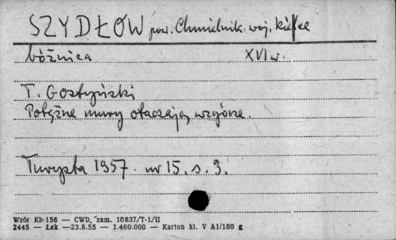 SZYDŁÓW pow. Chmielnik. woj. Kielce
bóżnica XVI w.
T. Gostyński
Potężne mury otaczają wzgórze.
Turysta 1957. nr 15. s. 3.
Wzór Kb-156 — CWD, zam. 10837/T-1/II
2445 — Łsk —23.8.55 — 1.460.000 — Karton kl. V A1/180 g